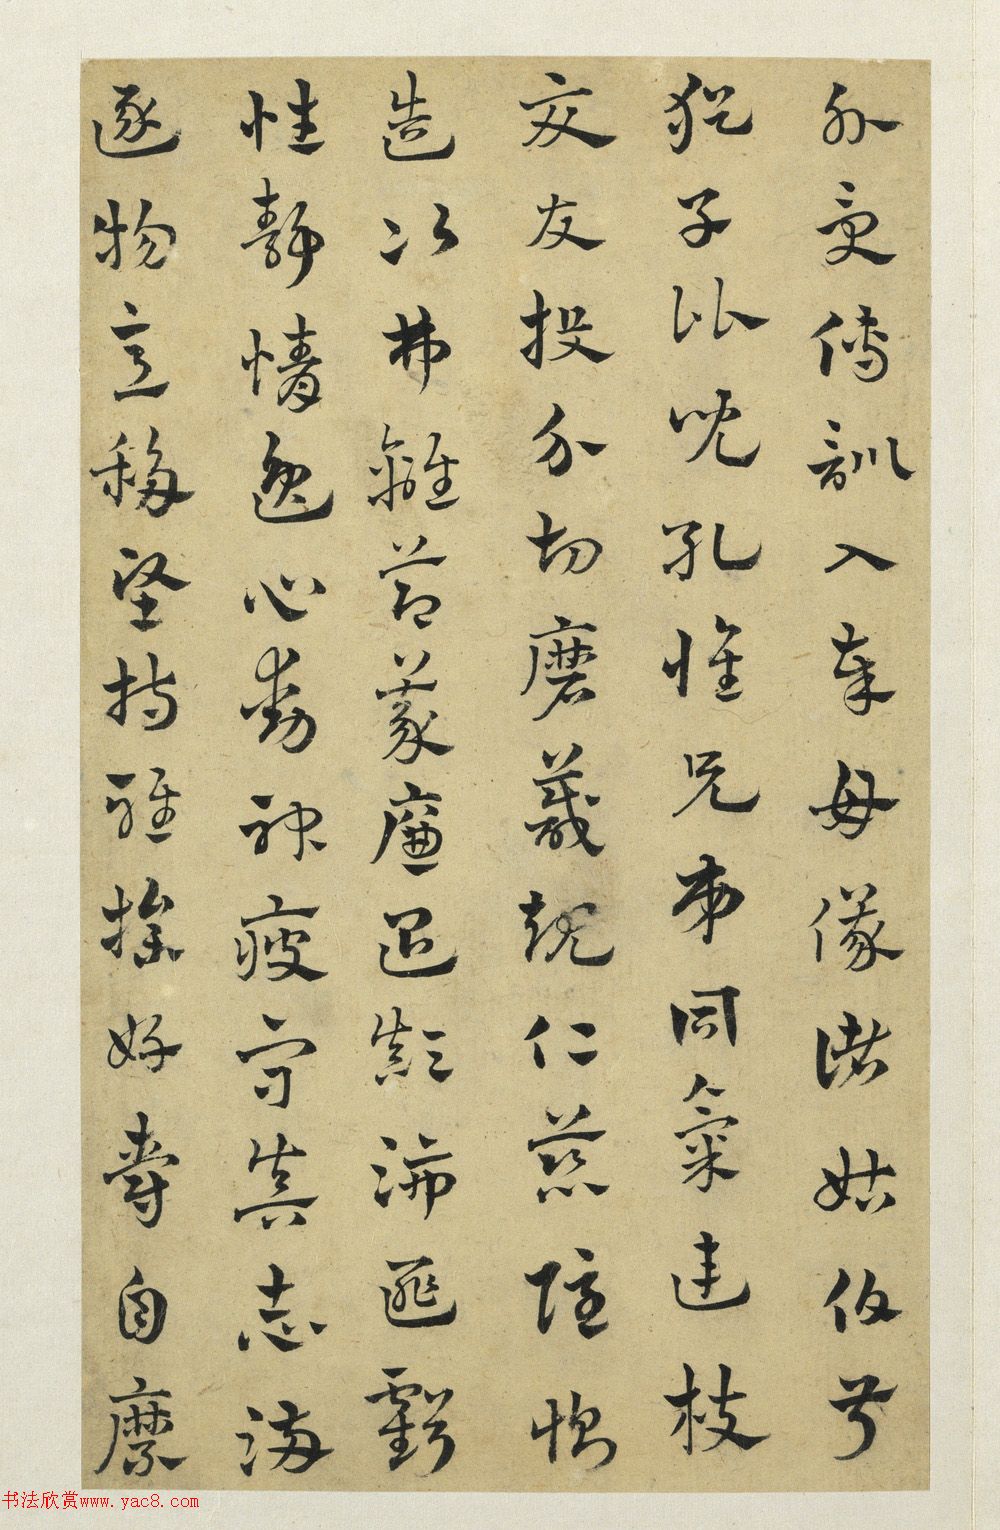 外受傅訓入奉母儀諸姑伯叔
猶子比兒孔懷兄弟同氣連枝
交友投分切磨箴規仁慈隱惻
造次弗離節義廉退顛沛匪虧
性靜情逸心動神疲守真志滿
逐物意移堅持雅操好爵自縻
书法欣赏www.yac8.com